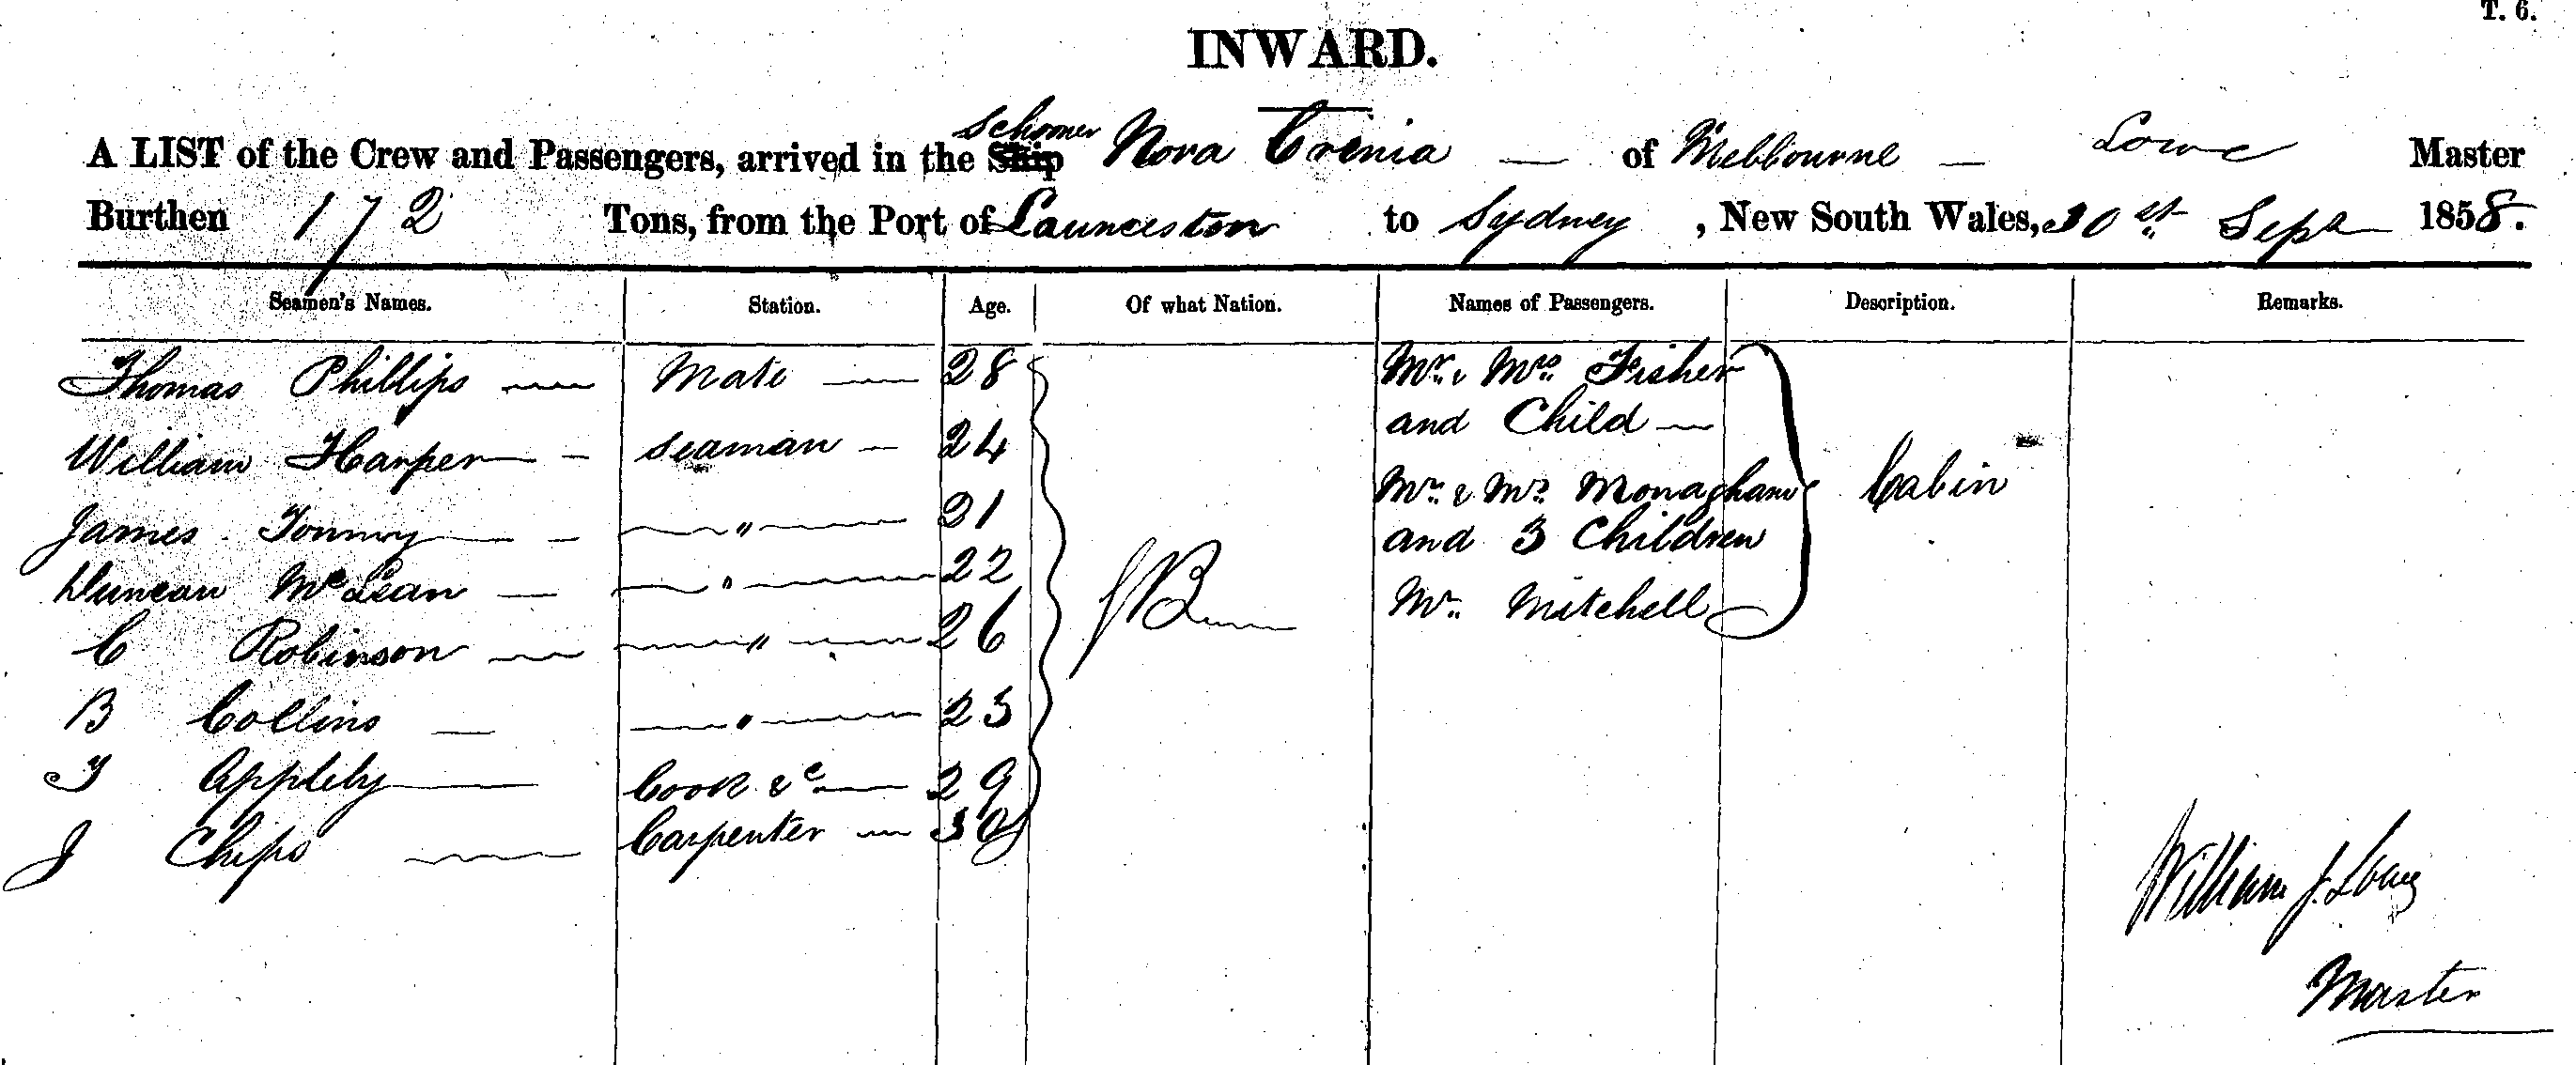 T. 6.
INWARD.
A LIST of the Crew and Passengers, arrived in the Ship Schooner Nora Crenia — of Melbourne — Lowe Master
Burthen 172 Tons, from the Port of Launceston to Sydney, New South Wales, 30st Sepr 1858.
Seamen's Names. Station. Age. Of what Nation. Names of Passengers. Description. Remarks.
Thomas Phillips — Mate — 28 Mr. & Mrs. Fisher
and Child —
William Harper — Seaman — 24
Mr. & Mrs. Monaghan Cabin
James — " — 21
and 3 Children
Duncan McLean — " — 22
Mr. Mitchell
C Robinson — " — 26
B Collins — " — 23
T Appleby — Cook &c — 29
J Chips — Carpenter — 30
William J. Lowe
Master